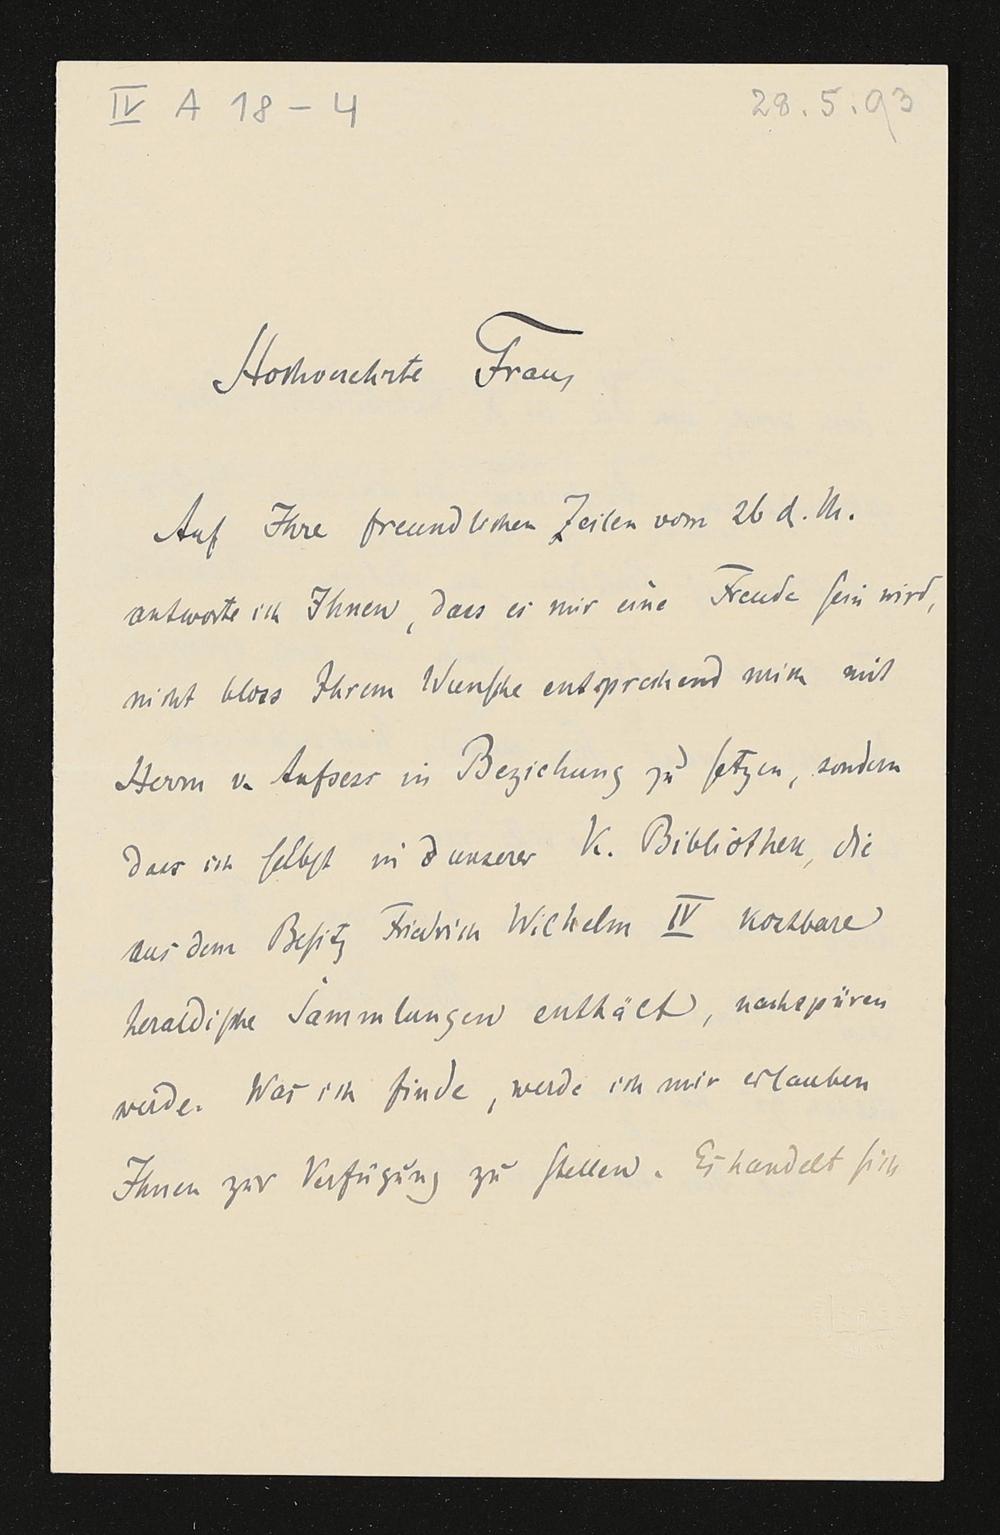 IV A 18-4
28.5.93
Hochverehrte Frau,
Auf Ihre freundlichen Zeilen vom 26 d. M.
antworte ich Ihnen, dass es mir eine Freude sein wird,
nicht bloss Ihrem Wunsche entsprechend mich mit
Herrn v. Aufsess in Beziehung zu setzen, sondern
dass ich selbst in unserer K. Bibliothek, die
aus dem Besitz Friedrich Wilhelm IV kostbare
heraldische Sammlungen enthält, nachspüren
werde. Was ich finde, werde ich mir erlauben
Ihnen zur Verfügung zu stellen. Es handelt sich